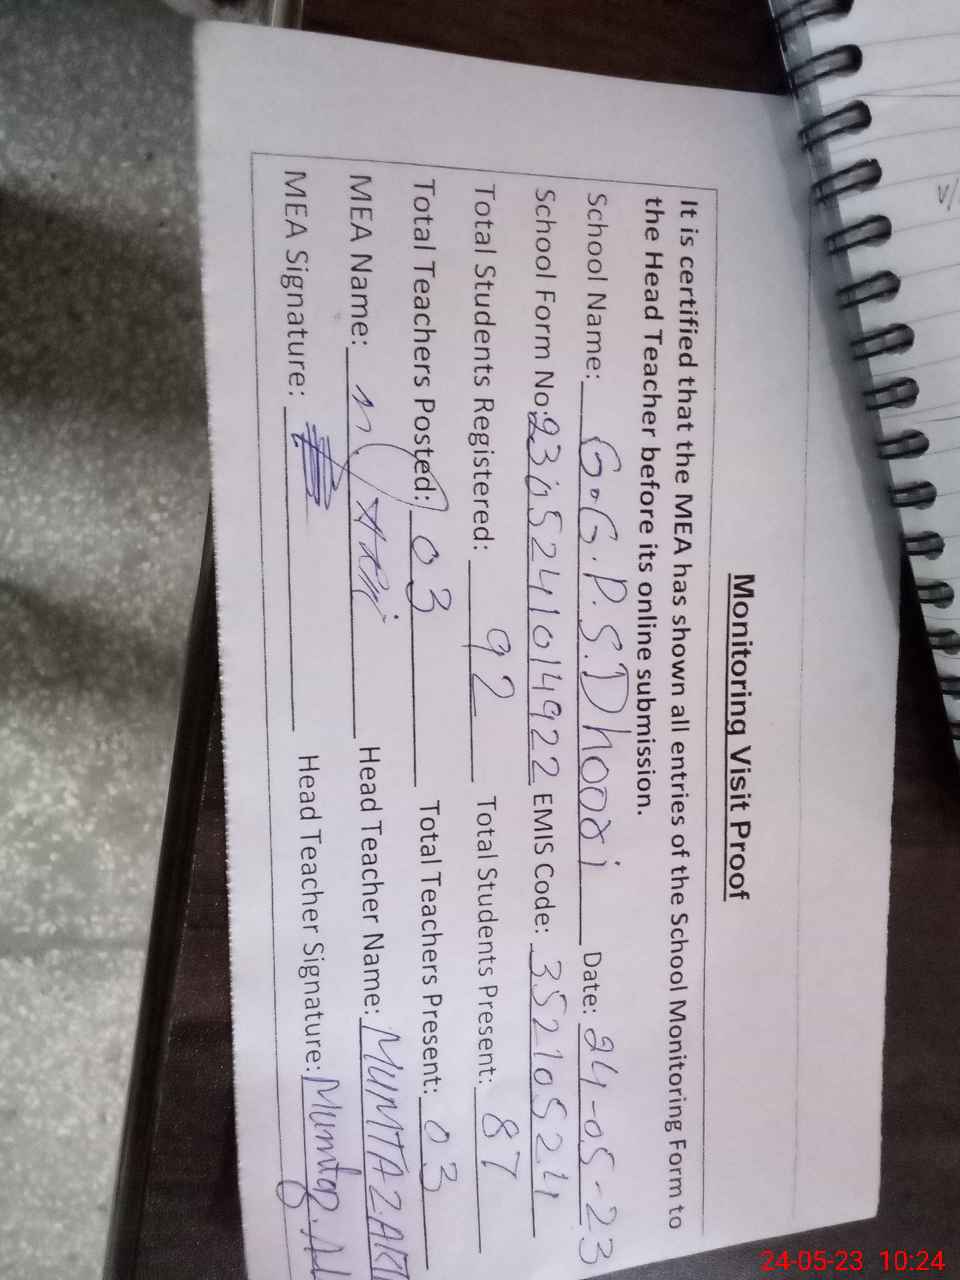 Monitoring Visit Proof
It is certified that the MEA has shown all entries of the School Monitoring Form to
the Head Teacher before its online submission.
School Name: G.G.P.S. Dhoori Date: 24-05-23
School Form No: 2305241014922 EMIS Code: 35210524
Total Students Registered: 92 Total Students Present: 87
Total Teachers Posted: 03 Total Teachers Present: 03
MEA Name: Head Teacher Name: MUMTAZ.AKT
MEA Signature: Head Teacher Signature: Mumtaz.Ak
24-05-23 10:24